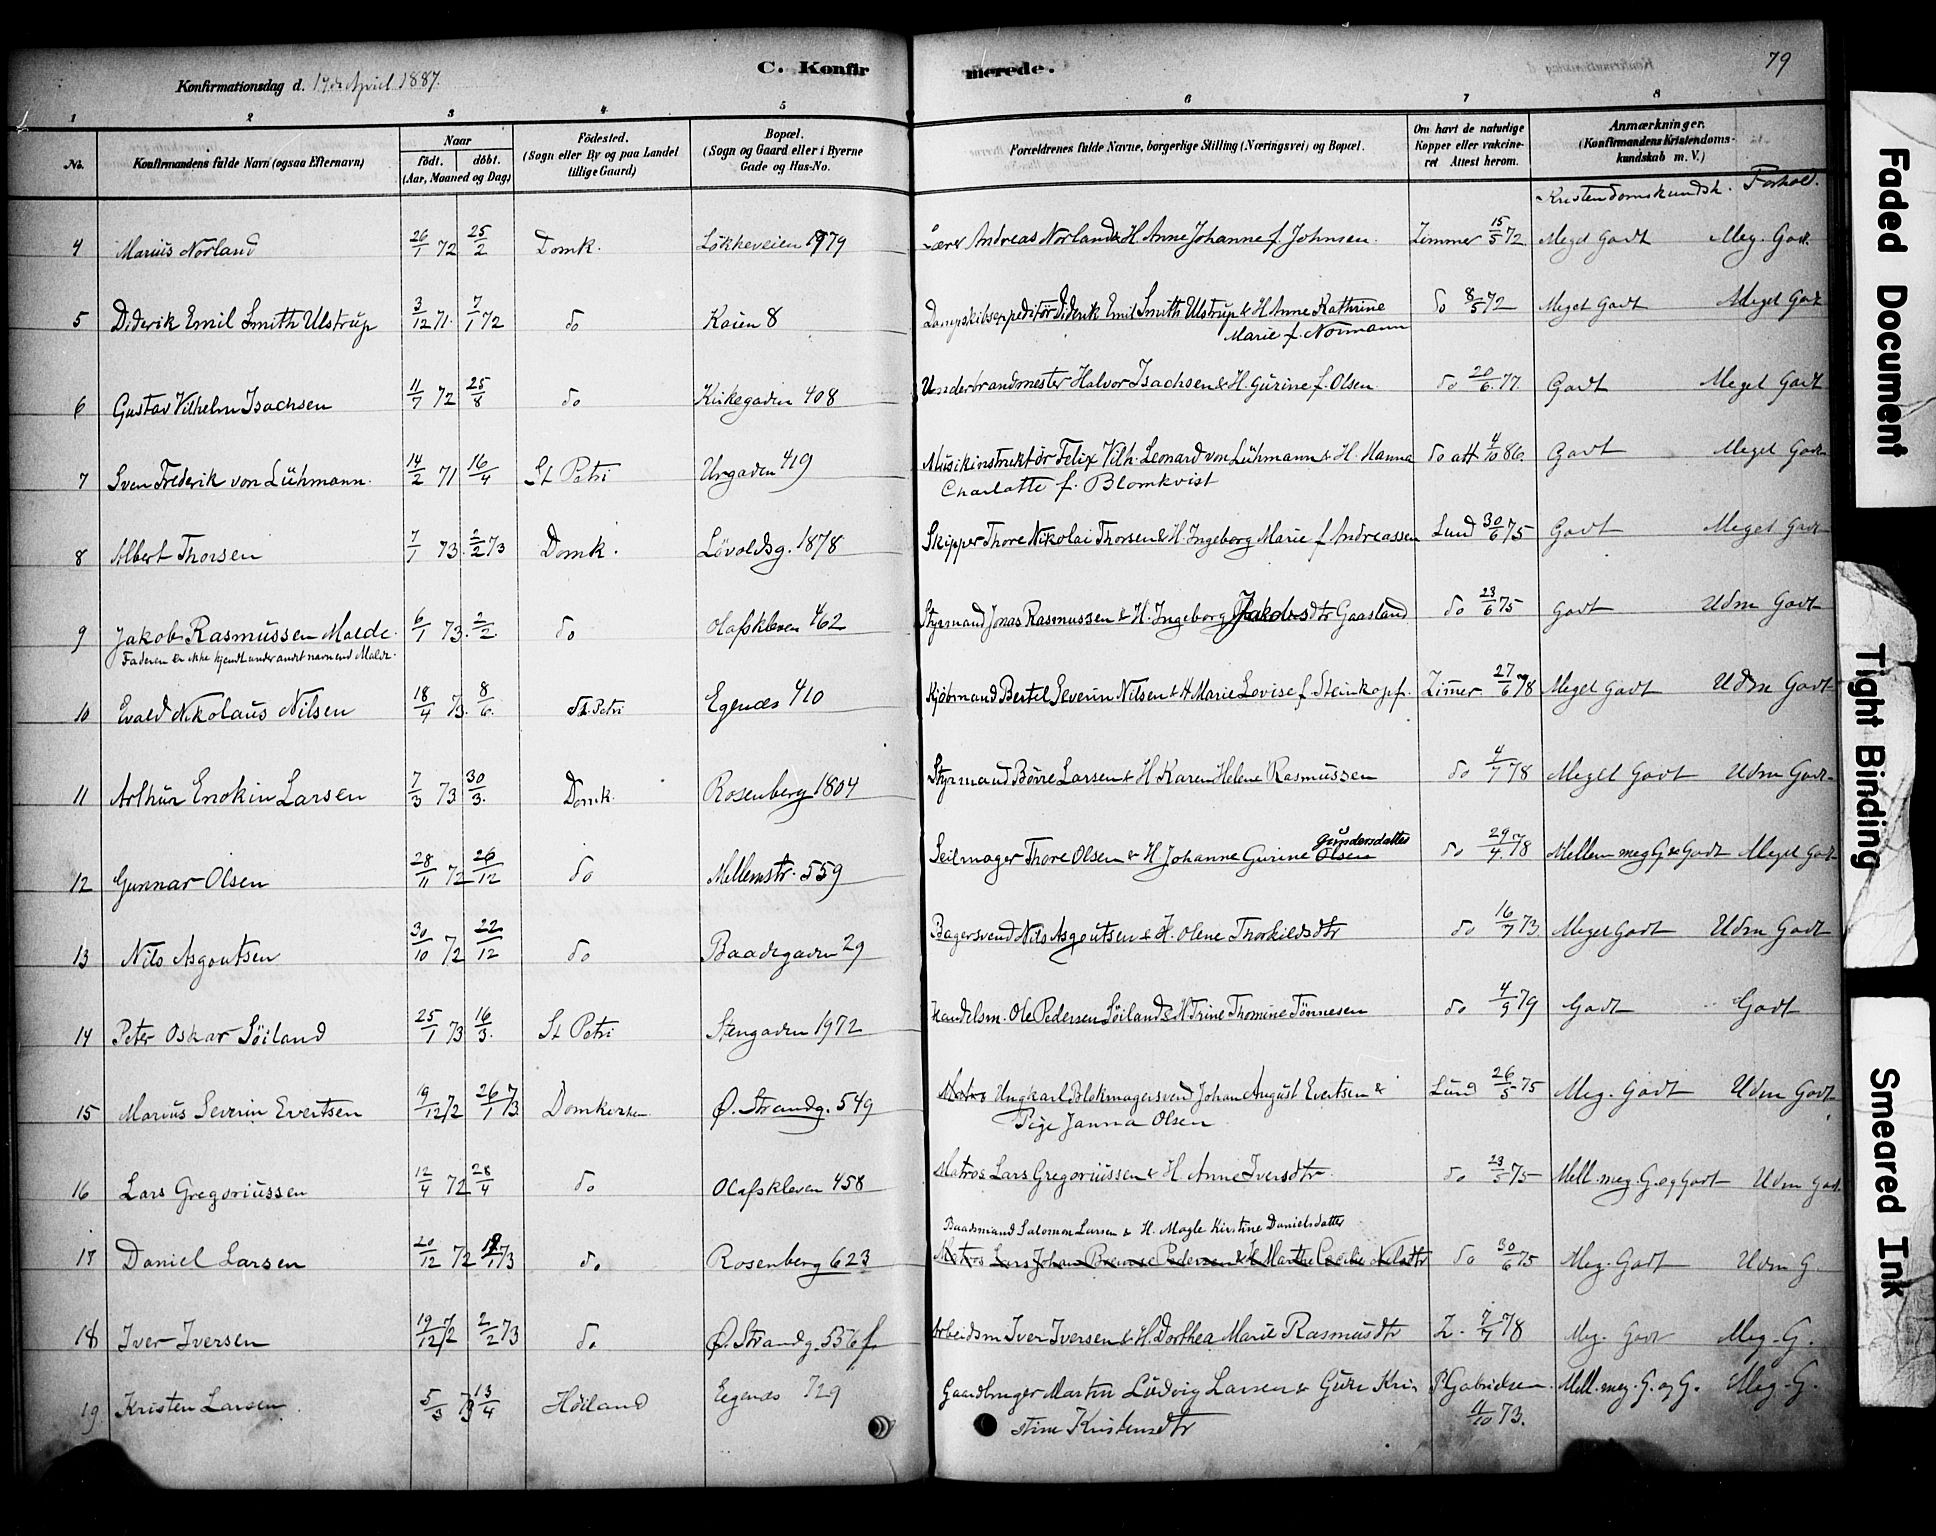 C. Konfirmerede.
79
Konfirmationsdag d. 17de April 1887.
1 2 3 4 5 6 7 8
No.
Konfirmandens fulde Navn (ogsaa Efternavn)
Naar
födt. döbt.
(Aar, Maaned og Dag)
Födested.
(Sogn eller By og paa Landet
tillige Gaard)
Bopæl.
(Sogn og Gaard eller i Byerne
Gade og Hus-No.
Forældrenes fulde Navne, borgerlige Stilling (Næringsvei) og Bopæl.
Om havt de naturlige
Kopper eller vakcine-
ret Attest herom.
Anmærkninger.
(Konfirmandens Kristendoms-
kundskab m. V.)
Kristendomskundsk. Forhold.
4 Marius Norland 26/1 72 25/2 Domk. Løkkeveien 1979 Lærer Andreas Norland & H. Anne Johanne f. Johnsen. Zimmer 15/5 72 Meget Godt Meg. Godt
5 Diderik Emil Smith Ulstrup 3/12 71. 7/1 72 do Kaien 8 Dampskibsexpeditør Diderik Emil Smith Ulstrup & H Anne Kathrine
Marie f. Normann do 8/5 72 Meget Godt Meget Godt
6 Gustav Vilhelm Isachsen 11/7 72 25/8 do Kirkegaden 408 Underbrandmester Halvor Isachsen & H. Gurine f. Olsen do 20/6 77 Godt Meget Godt
7 Sven Frederik von Lühmann. 14/2 71 16/4 St Petri Urgaden 419 Musikinstruktør Felix Vilh. Leonard von Lühmann & H. Hanna
Charlotte f. Blomkvist do att 4/10 86. Godt Meget Godt
8 Albert Thorsen 7/1 73. 2/2 73 Domk. Løvoldsg. 1878 Skipper Thore Nikolai Thorsen & H. Ingeborg Marie f Andreassen Lund 30/6 75 Godt Meget Godt
9 Jakob Rasmussen Malde. 6/1 73. 2/2 do Olafskleven 462 Styrmand Jonas Rasmussen & H. Ingeborg Jakobsdtr Gaasland do 23/6 75 Godt Udm Godt
Faderen er ikke kjendt under andet navn end Malde.
10 Evald Nikolaus Nilsen 18/4 73. 8/6. St. Petri Egenæs 410 Kjøbmand Bertel Severin Nilsen & H Marie Lovise f Steinkopf. Zimer 27/6 78 Meget Godt Udm Godt
11 Arthur Enokin Larsen 7/3 73 30/3. Domk. Rosenberg 1804 Styrmand Børre Larsen & H Karen Helene Rasmussen do 4/7 78 Meget Godt Udm Godt
12 Gunnar Olsen 28/11 72 26/12 do Mellemstr. 559 Seilmager Thore Olsen & H Johanne Gurine Olsen Gundersdatter do 29/4 78 Mellem meg G & Godt Meget Godt
13 Nils Asgoutsen 30/10 72 22/12 do Baadegaden 29 Bagersvend Nils Asgoutsen & H. Olene Thorkildsdtr do 16/7 73 Meget Godt Udm Godt
14 Peter Oskar Söiland 25/1 73 16/3. St Petri Stengaden 1972 Handelsm. Ole Pedersen Söiland & H Trine Thomine Tönnesen do 4/9 79 Godt Godt
15 Marius Severin Evertsen 19/12 72 26/1 73 Domkirken Ø. Strandg. 549 Matros Ungkarl Blokmagersvend Johan August Evertsen &
Pige Janna Olsen Lund 26/5 75 Meg. Godt Udm Godt
16 Lars Gregoriussen 12/4 72 28/4 do Olafskleven 458 Matros Lars Gregoriussen & H Anne Iversdtr do 23/5 75 Mell. meg. G. og Godt Udm God.
Baadsmand Salomon Larsen & H. Magle Kirstine Danielsdatter
17 Daniel Larsen 20/12 72 73 do Rosenberg 623 Matros Lars Johan Pedersen & H Marthe Cecilie do 30/6 75 Meg. Godt Udm G
18 Iver Iversen 19/12 72 2/2 73 do Ø. Strandg. 556 f. Arbeidsm Iver Iversen & H. Dorthea Marie Rasmusdtr Z. 7/7 78 Meg. Godt Meg. G.
19 Kristen Larsen 5/3 73 13/4 Höiland Egenæs 729 Gaardbruger Martin Ludvig Larsen & Guri Kri-
stine Kristensdtr P. Gabrielsen 11/10 73. Mell. meg. G. og G. Meg. G.
Faded Document
Tight Binding
Smeared Ink